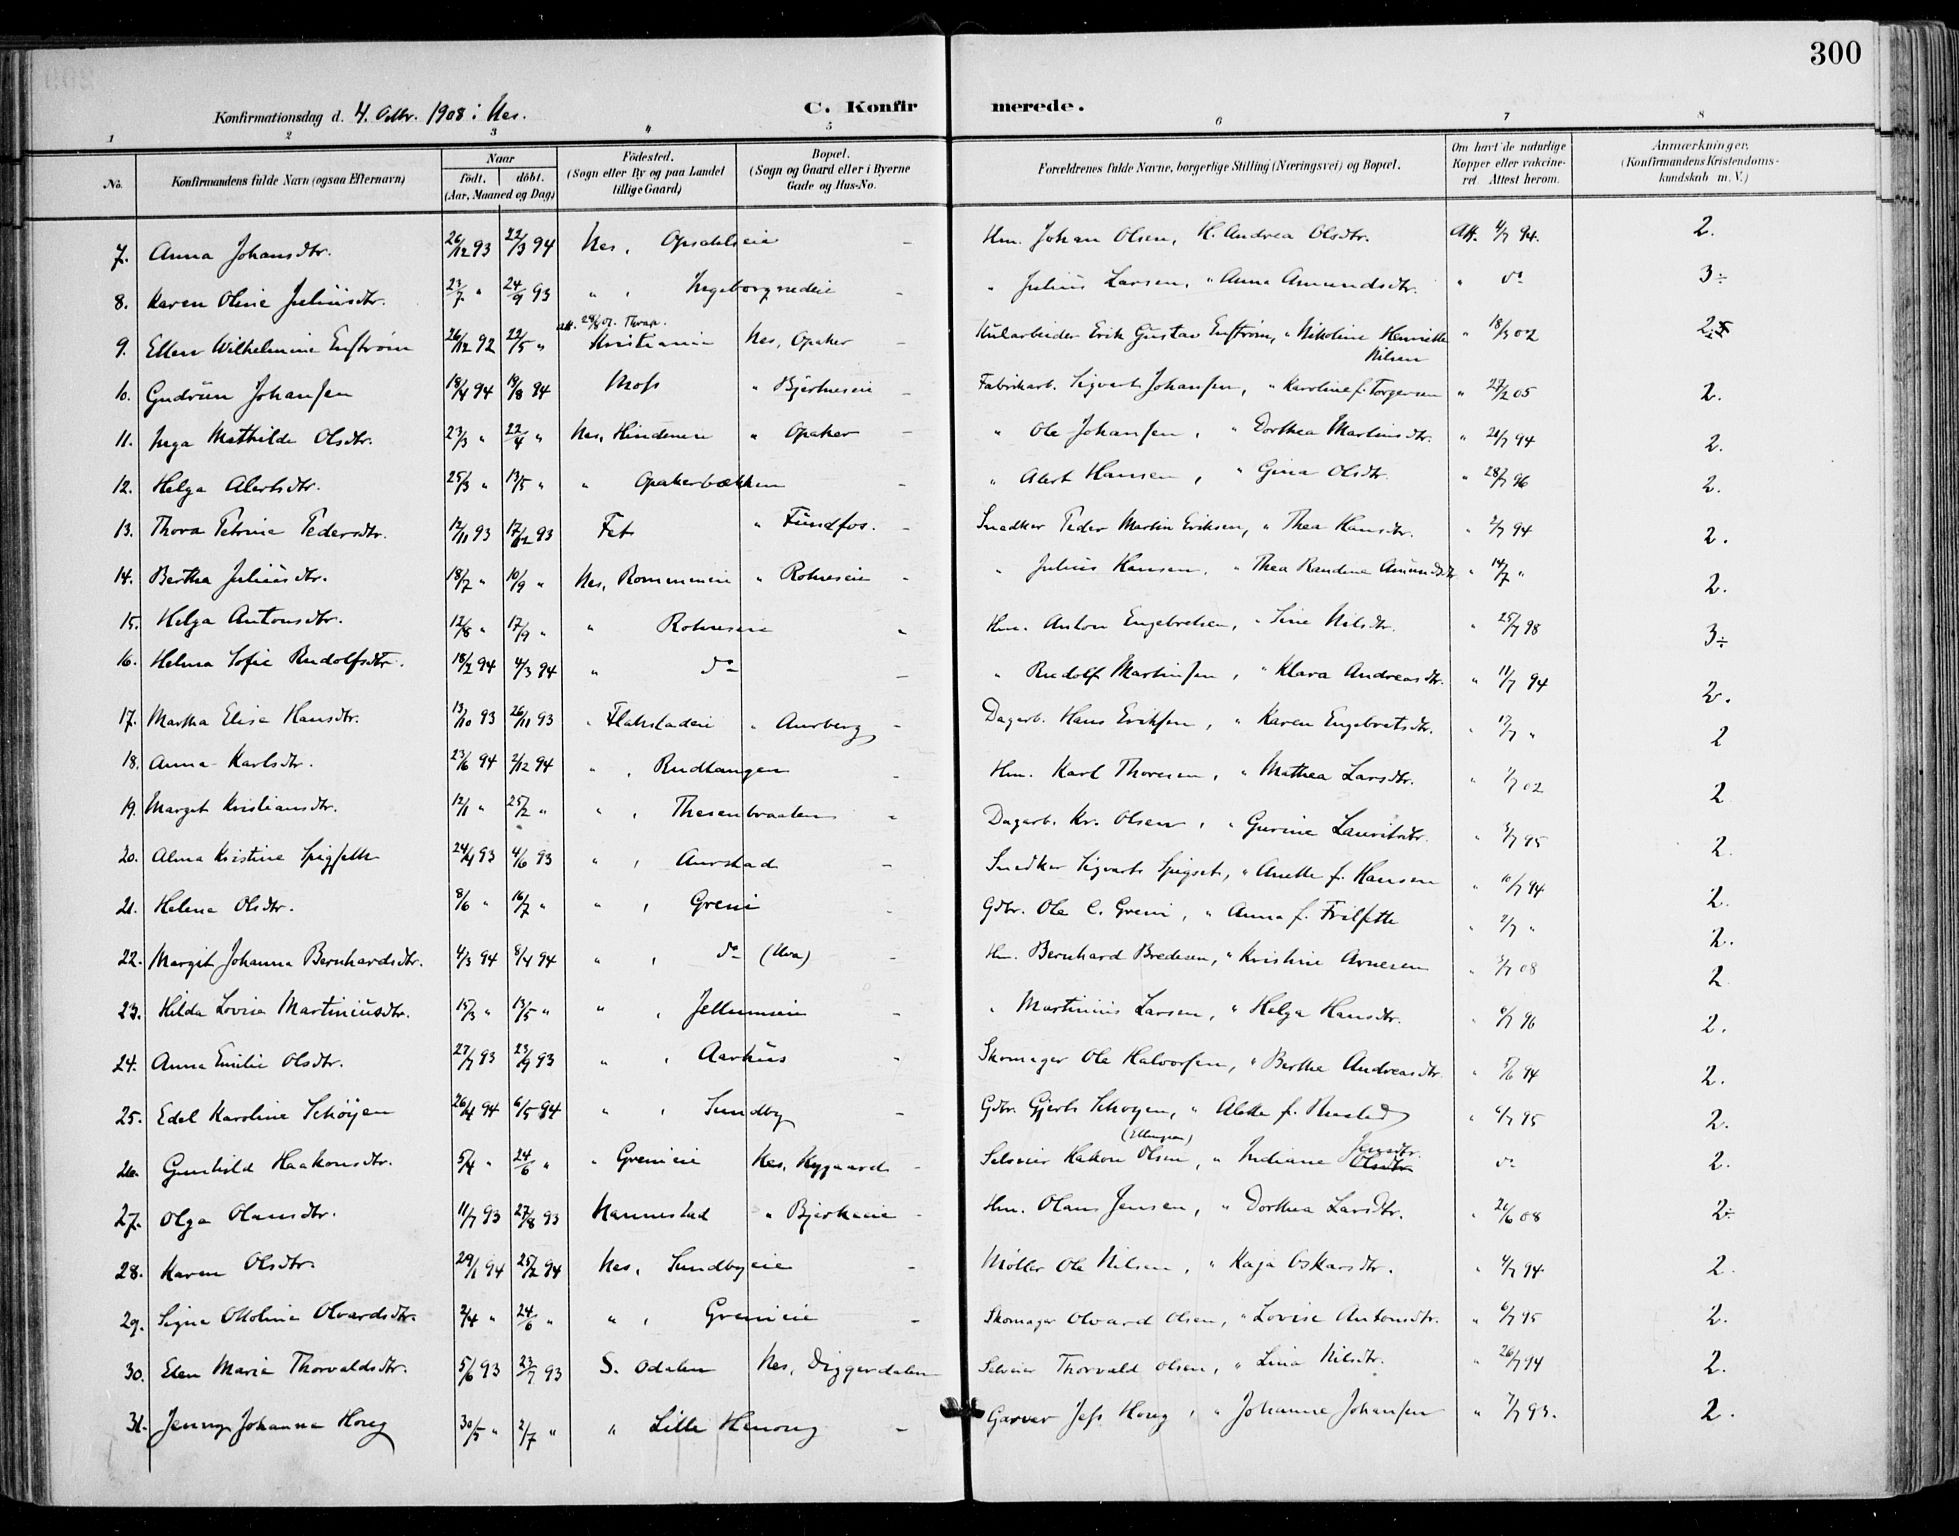 300
Konfirmationsdag d. 4. Oktbr. 1908 i Nes. C. Konfirmerede.
1 2 3 4 5 6 7 8
No. Konfirmandens fulde Navn (ogsaa Efternavn) Naar født. døbt. (Aar, Maaned og Dag) Fødested. (Sogn eller By og paa Landet tillige Gaard) Bopæl. (Sogn og Gaard eller i Byerne Gade og Hus-No. Forældrenes fulde Navne, borgerlige Stilling (Næringsvei) og Bopæl. Om havt de naturlige Kopper eller vakcineret. Attest herom. Anmærkninger. (Konfirmandens Kristendomskundskab m. V.)
7. Anna Johansdtr. 26/12 93 22/3 94 Nes, Opsahleie - Hm. Johan Olsen, H. Andrea Olsdtr. Att. 4/7 94. 2.
8. Karen Oline Juliusdtr. 23/7 " 24/9 93 " , Ingeborgrudeie - " Julius Larsen, " Anna Amundsdtr. " do 3÷
9. Ellen Wilhelmine Enstrøm 26/12 92 22/5 " Kristiania Nes, Opaker - Kularbeider Erik Gustav Enstrøm, " Nikoline Henriette Nilsen " 18/3 02
10. Gudrun Johansen 18/4 94 19/8 94 Moss " Bjerkneseie - Fabrikarb. Sigvart Johansen, " Karoline f. Torgersen " 27/2 05 2.
11. Inga Mathilde Olsdtr. 23/3 " 22/4 " Nes, " Opaker - " Ole Johansen, " Dorthea Martinsdtr. " 21/7 94 2.
12. Helga Alertsdtr. 25/3 " 13/5 " " Opakerbækken - " Alert Hansen, " Gina Olsdtr. " 28/7 96 2.
13. Thora Petrine Pedersdtr. 12/11 93 17/12 93 Fet " Fundfos. - Snedker Peder Martin Eriksen, " Thea Hansdtr. " 2/7 94 2.
14. Bertha Juliusdtr. 18/7 " 10/9 " Nes, Rommeneie " Rotneseie - " Julius Hansen, " Thea Randine Amundsdtr " 14/7 " 2.
15. Helga Antonsdtr. 12/8 " 17/9 " " Rotneseie " Hm. Anton Engebretsen, " Line Nilsdtr. " 25/7 98 3÷
16. Helma Sofie Rudolfsdtr. 18/2 94 4/3 94 " do - " Rudolf Martinsen, " Klara Andreasdtr. " 11/7 94 2.
17. Martha Elise Hansdtr. 13/10 93 26/11 93 " Flakstadeie " Aurberg - Dagarb. Hans Eriksen, " Karen Engebretsdtr. " 17/7 " 2
18. Anna Karlsdtr. 23/6 94 2/12 94 " , Rudtangen - Hm. Karl Thoresen, " Mathea Larsdtr. " 1/7 02 2
19. Margit Kristiansdtr. 12/1 " 25/2 " " , Thesenbraaten - Dagarb. Kr. Olsen, " Gurine Lauritsdtr. " 3/7 95 2.
20. Alma Kristine Spigseth 24/4 93 4/6 93 " , Aurstad - Snedker Sigvart Spigset, " Anette f. Hansen " 10/7 94 2.
21. Helena Olsdtr. 8/6 " 16/7 " " , Greni - Gdbr. Ole C. Greni, " Anna f. Frilseth " 2/7 " 2.
22. Margit Johanna Bernhardsdtr. 4/3 94 8/4 94 " , do (Hva) - Hm. Bernhard Bredesen, " Kristine Arnesen " 3/7 08 2
23. Hilda Lovise Martiniusdtr. 15/3 " 13/5 " " , Jellumseie - " Martinius Larsen, " Helga Hansdtr. " 6/7 96 2.
24. Anna Emilie Olsdtr. 27/7 93 23/9 93 " , Aarhus - Skomager Ole Halvorsen, " Berthe Andreasdtr. " 5/6 94 2.
25. Edel Karoline Schøyen 26/4 94 6/5 94 " , Sundby - Gdbr. Gjert Schøyen, " Alette f. " 6/7 95 2.
26. Gunhild Haakonsdtr. 5/4 " 24/6 " " Grenieie Nes, Nygaard - Selveier Hakon Olsen (Ellingsen), " Indiane Olsdtr. Jensdtr. do 2.
27. Olga Olausdtr. 11/7 93 27/8 93 Nannestad " Bjerkneie - Hm. Olaus Jensen, " Dorthea Larsdtr. " 26/6 08 2÷
28. Karen Olsdtr. 29/1 94 25/2 94 Nes, Sundbyeie - Møller Ole Nilsen, " Kaja Oskarsdtr. " 4/7 94 2.
29. Signe Ottoline Olvardsdtr. 2/4 " 24/6 " " , Grenieie - Skomager Olvard Olsen, " Lovise Antonsdtr. " 6/7 95 2.
30. Elen Marie Thorvaldsdtr. 5/6 93 23/7 93 S. Odalen Nes, Diggerdalen Selveier Thorvald Olsen, " Lina Nilsdtr. " 26/7 94 2.
31. Jenny Johanna Houg 30/5 " 2/7 " " Lille Henong - Garver Jess Houg, " Johanne Johansen " 7/7 93. 2.